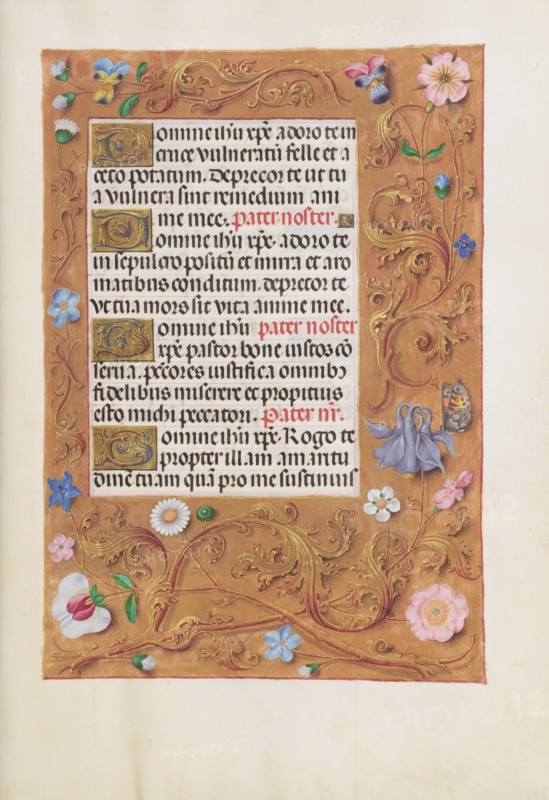 Domine ihū xpē adoro te in
cruce vulneratū felle et a
ceto potatum. deprecor te ut tu
a vulnera sint remedium ani
me mee. pater noster.
Domine ihū xpē. adoro te
in sepulcro positū et mirra et aro
matibus conditum. deprecor te.
vt tua mors sit vita anime mee.
Domine ihū pater noster
xpē pastor bone iustos cō
serua. peccores iustifica omnibꝫ
fidelibus miserere et propitius
esto michi peccatori. Pater nr̄.
Domine ihū xpē. Rogo te
propter illam amaritu
dinē tuam quā pro me sustinuis
PHOTO12
PHOTO12
PHOTO12
PHOTO12
PHOTO12